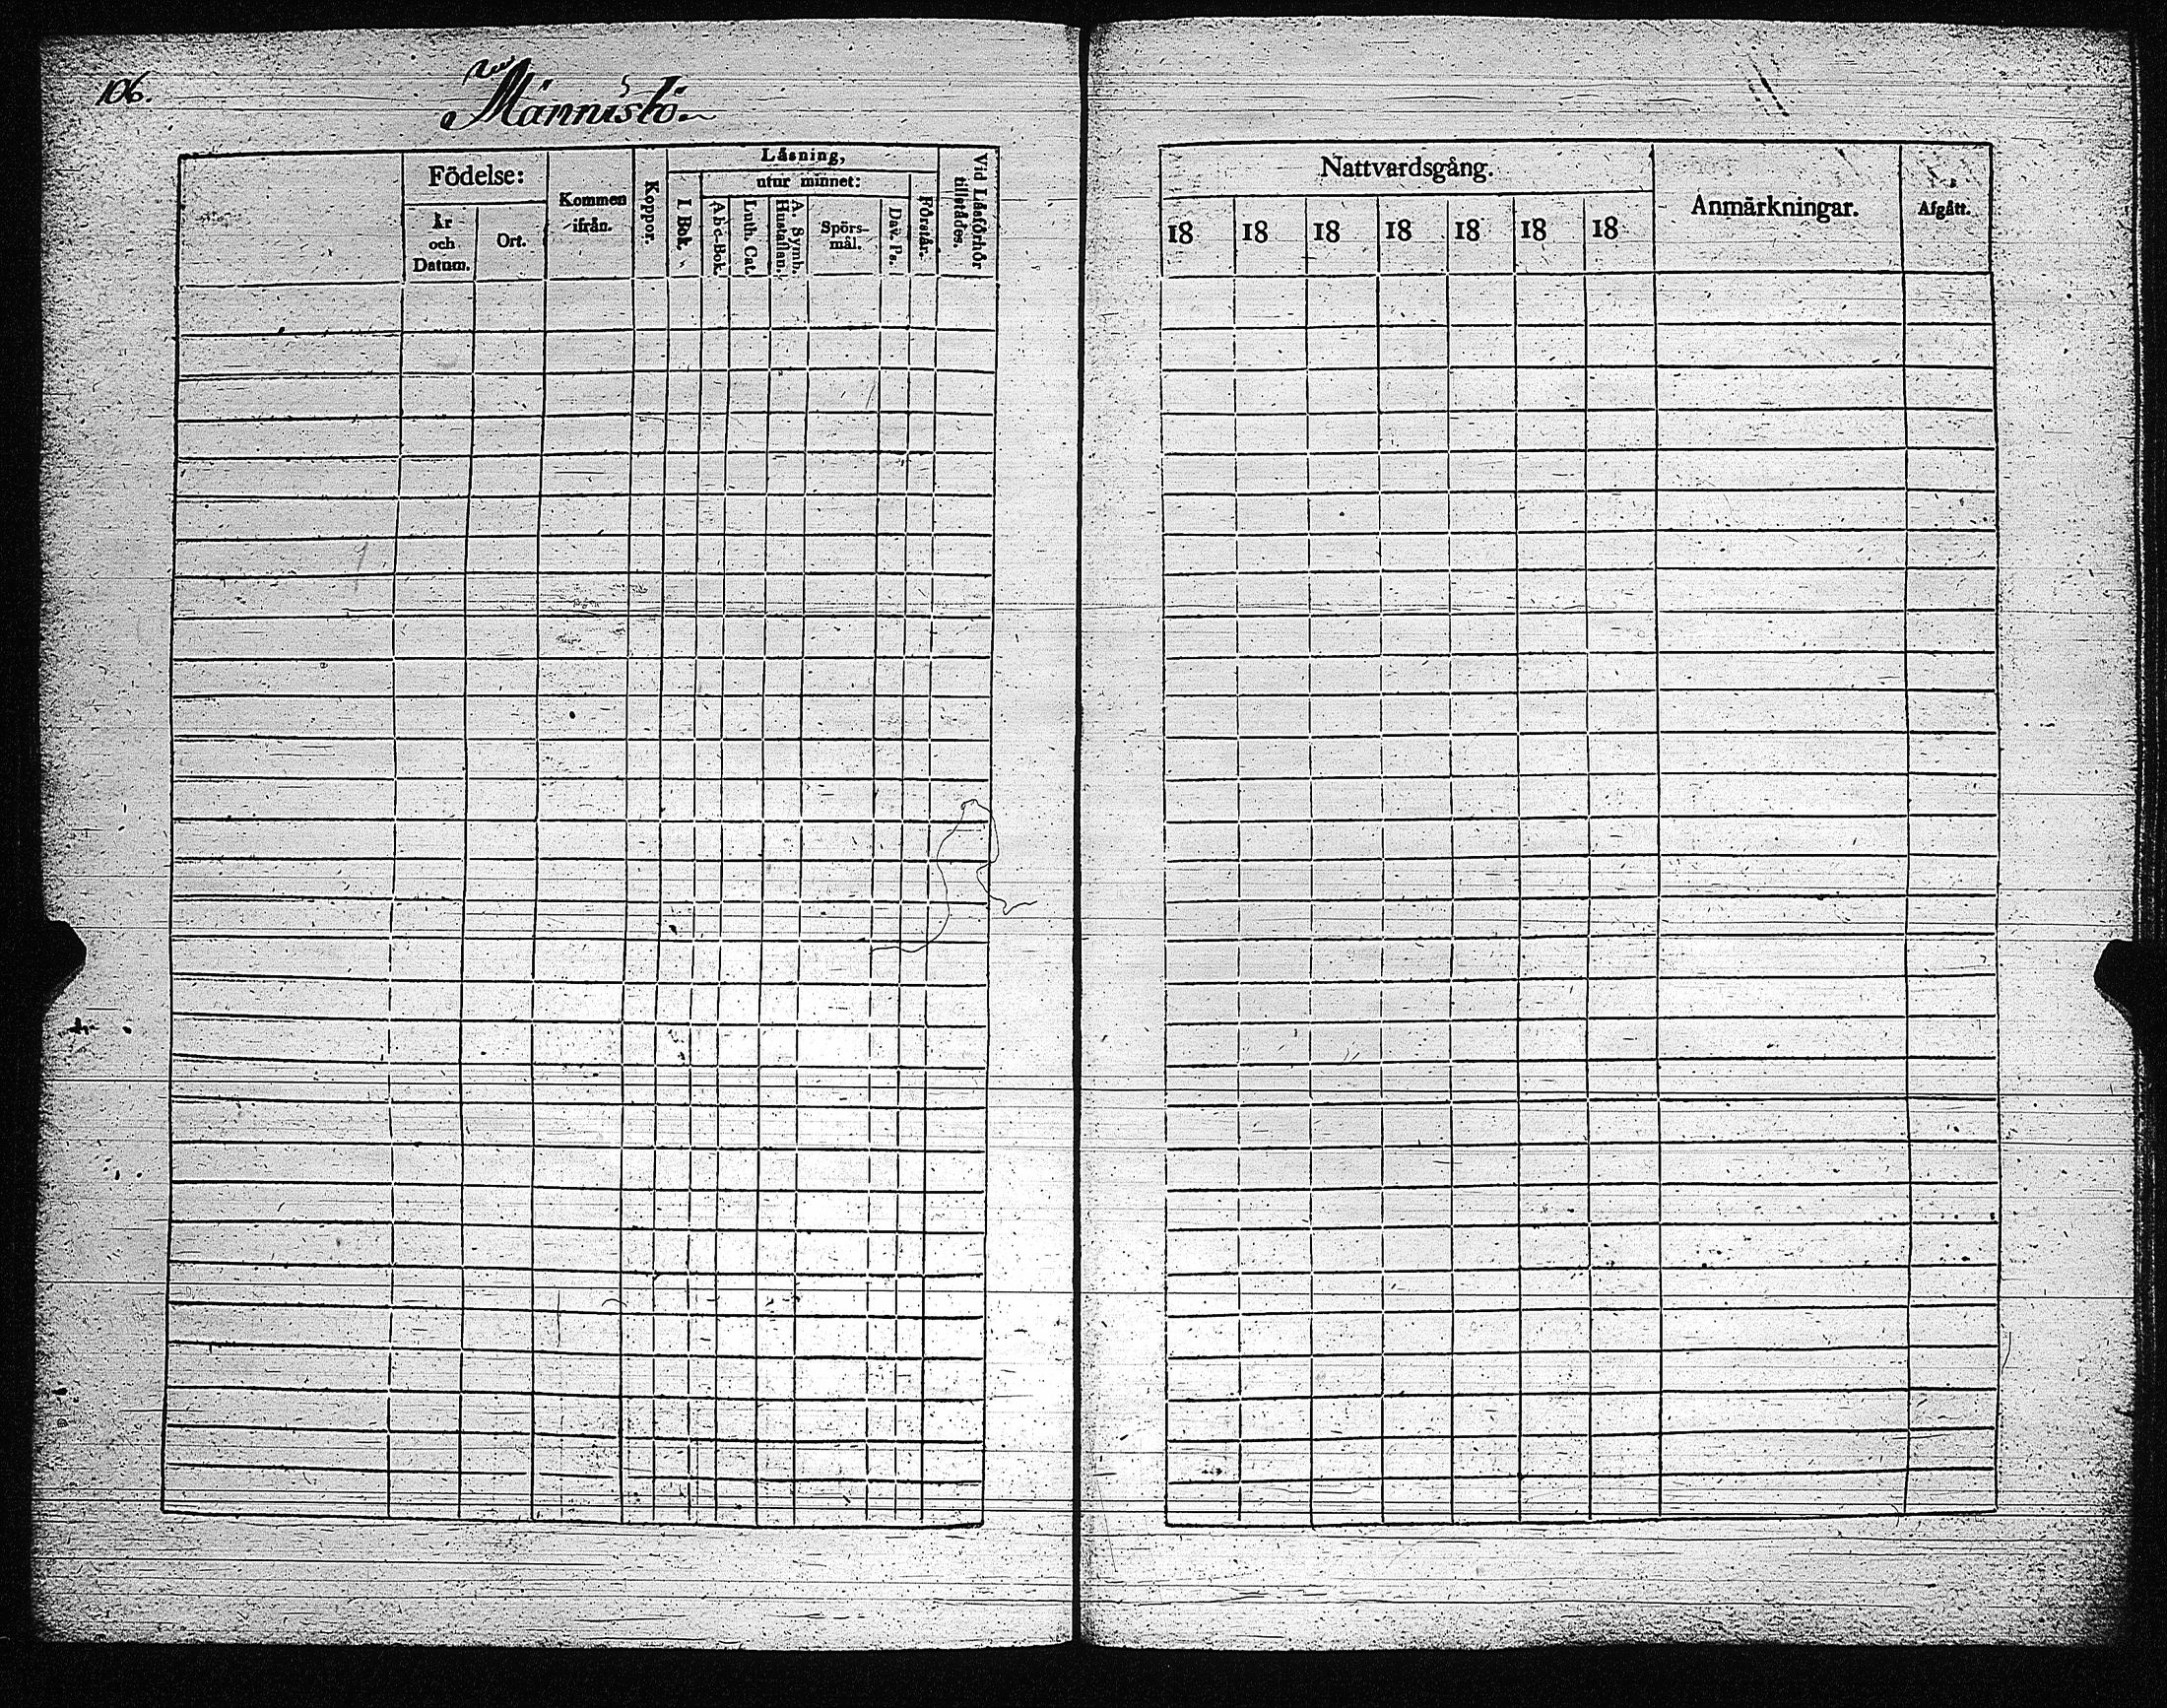 106.
Männistö
Födelse:
År och Datum.
Ort.
Kommen ifrån.
Koppor.
Läsning,
I Bok.
utur minnet:
A b c-Bok.
Luth. Cat.
A. Symb. Hustaflan.
Spörs-mål.
Dav. Ps.
Förstår.
Vid Läsförhör tillstådes.
Nattvardsgång.
18 18 18 18 18 18 18
Anmärkningar.
Afgått.